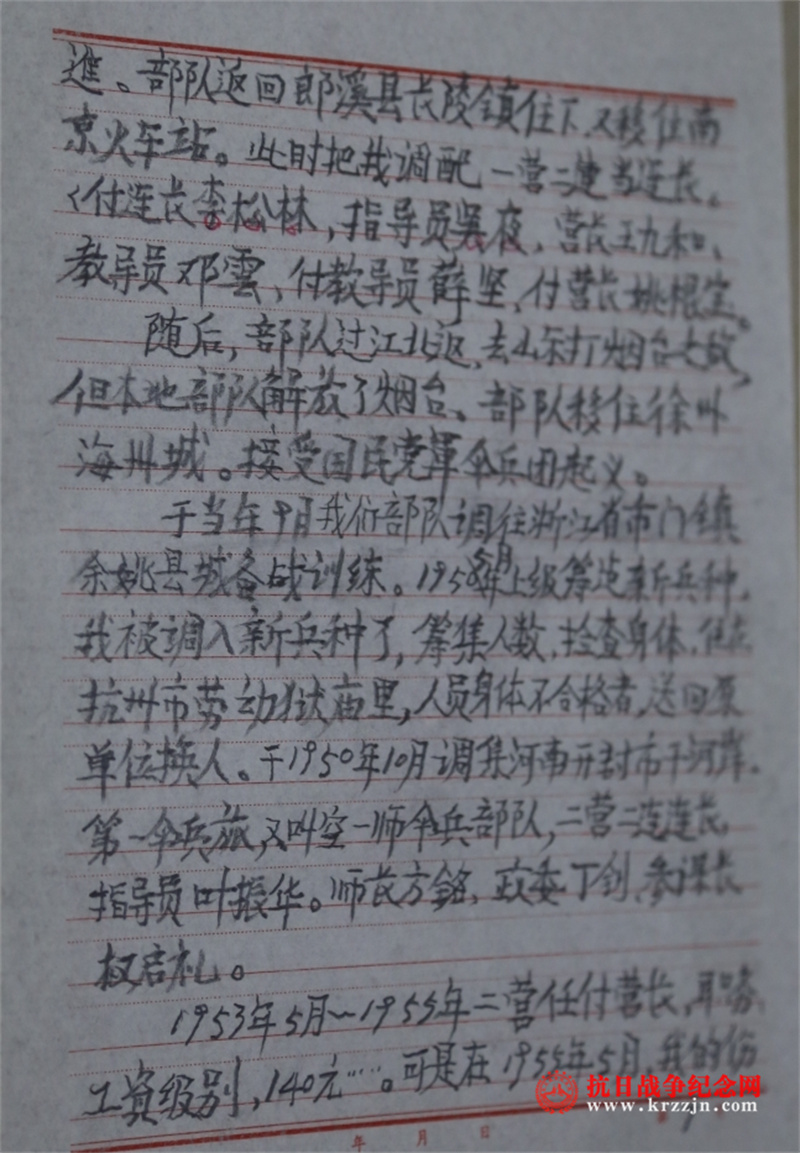 進。部队返回郎溪县长陵镇住下，又移住南
京火车站。此时把我调配一营二連当连长。
<付连长李松林，指导员吴夜，营长王九和、
教导员邓雲、付教导员薛坚，付营长姚根宝。
随后，部队过江北返，去山东打烟台
但本地部队解放了烟台、部队移住徐州
海州城。接受国民党軍伞兵团起义。
于当年9月我们部队调往浙江省市门镇
余姚县城备战训练。1950年上级筹建新兵种，
我被調入新兵种了，筹集人数，检查身体，住在
杭州市劳动狱庙里，人员身体不合格者，送回原
单位换人。于1950年10月调集河南开封市干河岸。
第一伞兵旅，又叫空一师伞兵部队，二营二连连长，
指导员叶振华。师长方銘，政委丁钊，参谋长
权启礼。
1953年5月～1955年二营任付营长，职务
工资级别，140元……。可是在1955年5月，我的
抗日战争纪念网
www.krzzjn.com
年 月 日